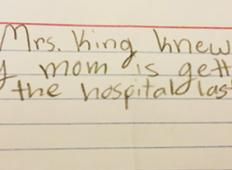 Mrs. King knew
y mom is gett
the hospital las